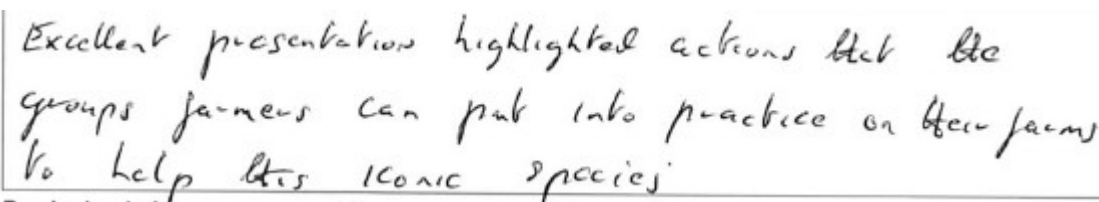 Excellent presentation highlighted actions that the
groups farmers can put into practice on their farms
to help this iconic species